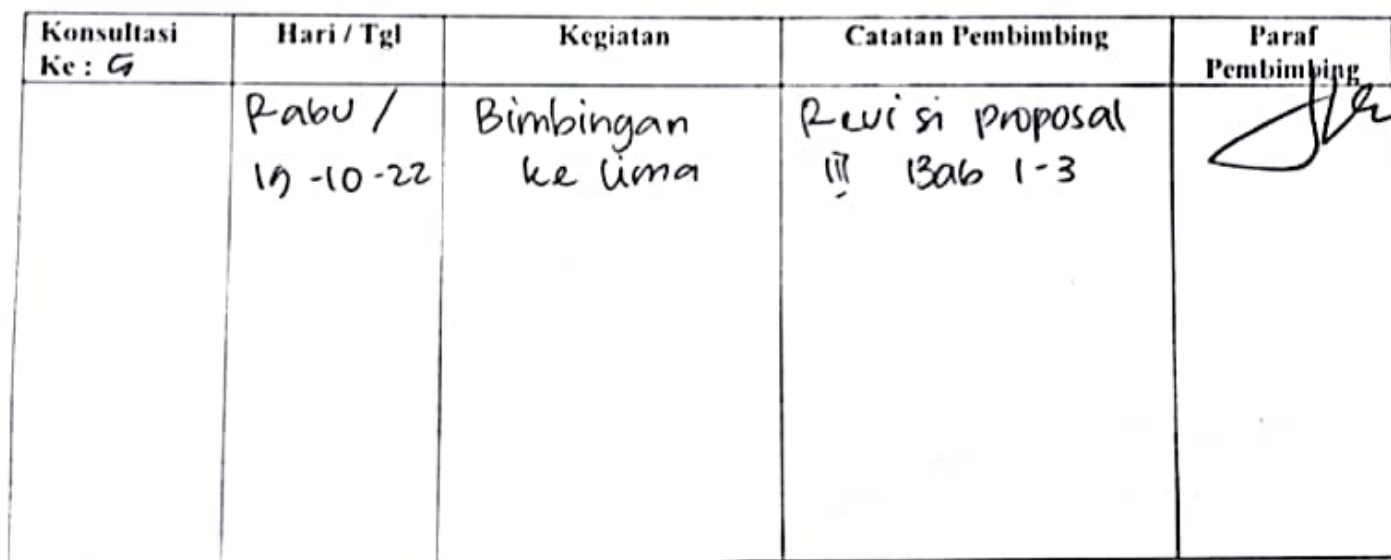 Konsultasi
Ke : 5
Hari / Tgl
Kegiatan
Catatan Pembimbing
Paraf
Pembimbing
Rabu /
19-10-22
Bimbingan
ke lima
Revisi proposal
III Bab 1-3